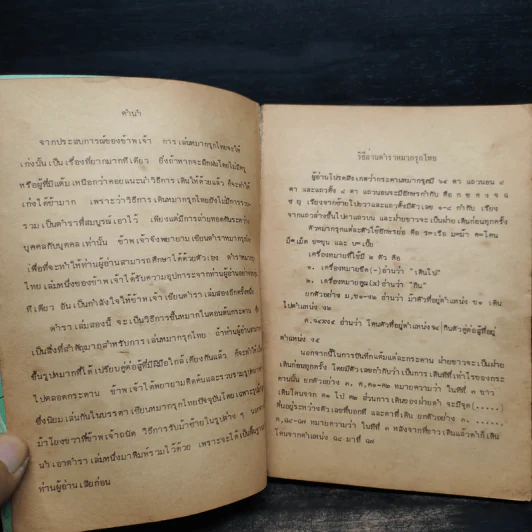 คำนำ
จากประสบการณ์ของข้าพเจ้า การเล่นหมากรุกไทยจะให้
เก่งนั้นเป็นเรื่องที่ยากมากทีเดียว ยิ่งถ้าหากจะฝึกฝนโดยไม่มีครู
หรือผู้ที่มีแต้มเหนือกว่าคอยแนะนำวิธีการเดินให้ด้วยแล้ว ก็จะทำให้
เก่งได้ช้ามาก เพราะว่าวิธีการเดินหมากรุกไทยยังไม่มีการรวบ
รวมเป็นตำราที่สมบูรณ์เอาไว้ เพียงแต่มีการถ่ายทอดกันระหว่าง
บุคคลกับบุคคลเท่านั้น ข้าพเจ้าจึงพยายามเขียนตำราหมากรุก
เพื่อที่จะทำให้ท่านผู้อ่านสามารถศึกษาได้ด้วยตัวเอง ตำราหมากรุก
ไทยเล่มหนึ่งของข้าพเจ้าได้รับความอุปการะจากท่านผู้อ่านอย่าง
ทีเดียว อันเป็นกำลังใจให้ข้าพเจ้าเขียนตำราเล่มสองอีกครั้งหนึ่ง
ตำราเล่มสองนี้ จะเป็นวิธีการขึ้นหมากในตอนต้นกระดาน ซึ่ง
เป็นสิ่งที่สำคัญมากสำหรับการเล่นหมากรุกไทย ถ้าท่านผู้อ่าน
ขึ้นรูปหมากที่ได้เปรียบคู่ต่อสู้ที่มีฝีมือใกล้เคียงกันแล้ว ก็จะทำให้
ไปตลอดกระดาน ข้าพเจ้าได้พยายามคิดค้นและรวบรวมรูปหมาก
ซึ่งนิยมเล่นกันในบรรดาเซียนหมากรุกไทยปัจจุบันโดยเฉพาะรูป
ม้าโยงขวาที่ข้าพเจ้าถนัด วิธีการรับม้าซ้ายในรูปต่าง ๆ
นำเอาตำราเล่มหนึ่งมาพิมพ์รวมไว้ด้วย เพราะจะได้เป็นพื้นฐาน
ท่านผู้อ่านเสียก่อน
วิธีอ่านตำราหมากรุกไทย
ผู้อ่านโปรดสังเกตว่ากระดานหมากรุกมี ๖๔ ตา แถวนอน ๘
ตา และแถวตั้ง ๘ ตา แถวนอนจะมีอักษรกำกับ คือ ก ข ค ง จ ฉ
ช ญ เรียงจากซ้ายไปขวาและแถวตั้งมีตัวเลข ๑-๘ กำกับ เรียง
จากแถวล่างขึ้นไปหาแถวบน และฝ่ายขาวจะเป็นฝ่ายเดินก่อนทุกครั้ง
ตัวหมากรุกแต่ละตัวใช้อักษรย่อ คือ ร=เรือ ม=ม้า ค=โคน
ม็=เม็ด ข=ขุน และ บ=เบี้ย
เครื่องหมายที่ใช้มี ๒ ตัว คือ
๑. เครื่องหมายขีด (-) อ่านว่า "เดินไป"
๒. เครื่องหมายคูณ (x) อ่านว่า "กิน"
ยกตัวอย่าง ม,ข๑-ค๒ อ่านว่า ม้าตัวที่อยู่ตำแหน่ง ข๑ เดิน
ไปตำแหน่ง ค๒
ค,จ๔xง๕ อ่านว่า โคนตัวที่อยู่ตำแหน่ง จ๔ กินตัวคู่ต่อสู้ที่อยู่
ตำแหน่ง ง๕
นอกจากนี้ในการบันทึกแต้มแต่ละกระดาน ฝ่ายขาวจะเป็นฝ่าย
เดินก่อนทุกครั้ง โดยมีตัวเลขกำกับว่า เป็นการเดินทีที่เท่าไรของกระ
ดานนั้น ยกตัวอย่าง ๓. ค,ค๑-ค๒ หมายความว่า ในทีที่ ๓ ขาว
เดินโคนจาก ค๑ ไป ค๒ ส่วนการเดินของฝ่ายดำ จะมีจุด(.....)
คั่นอยู่ระหว่างตัวเลขที่บอกที และตาที่เดิน ยกตัวอย่าง ๓. .....
ค,ฉ๘-ฉ๗ หมายความว่า ในทีที่ ๓ หลังจากที่ขาวเดินแล้วดำก็เดิน
โคนจากตำแหน่ง ฉ๘ มาที่ ฉ๗